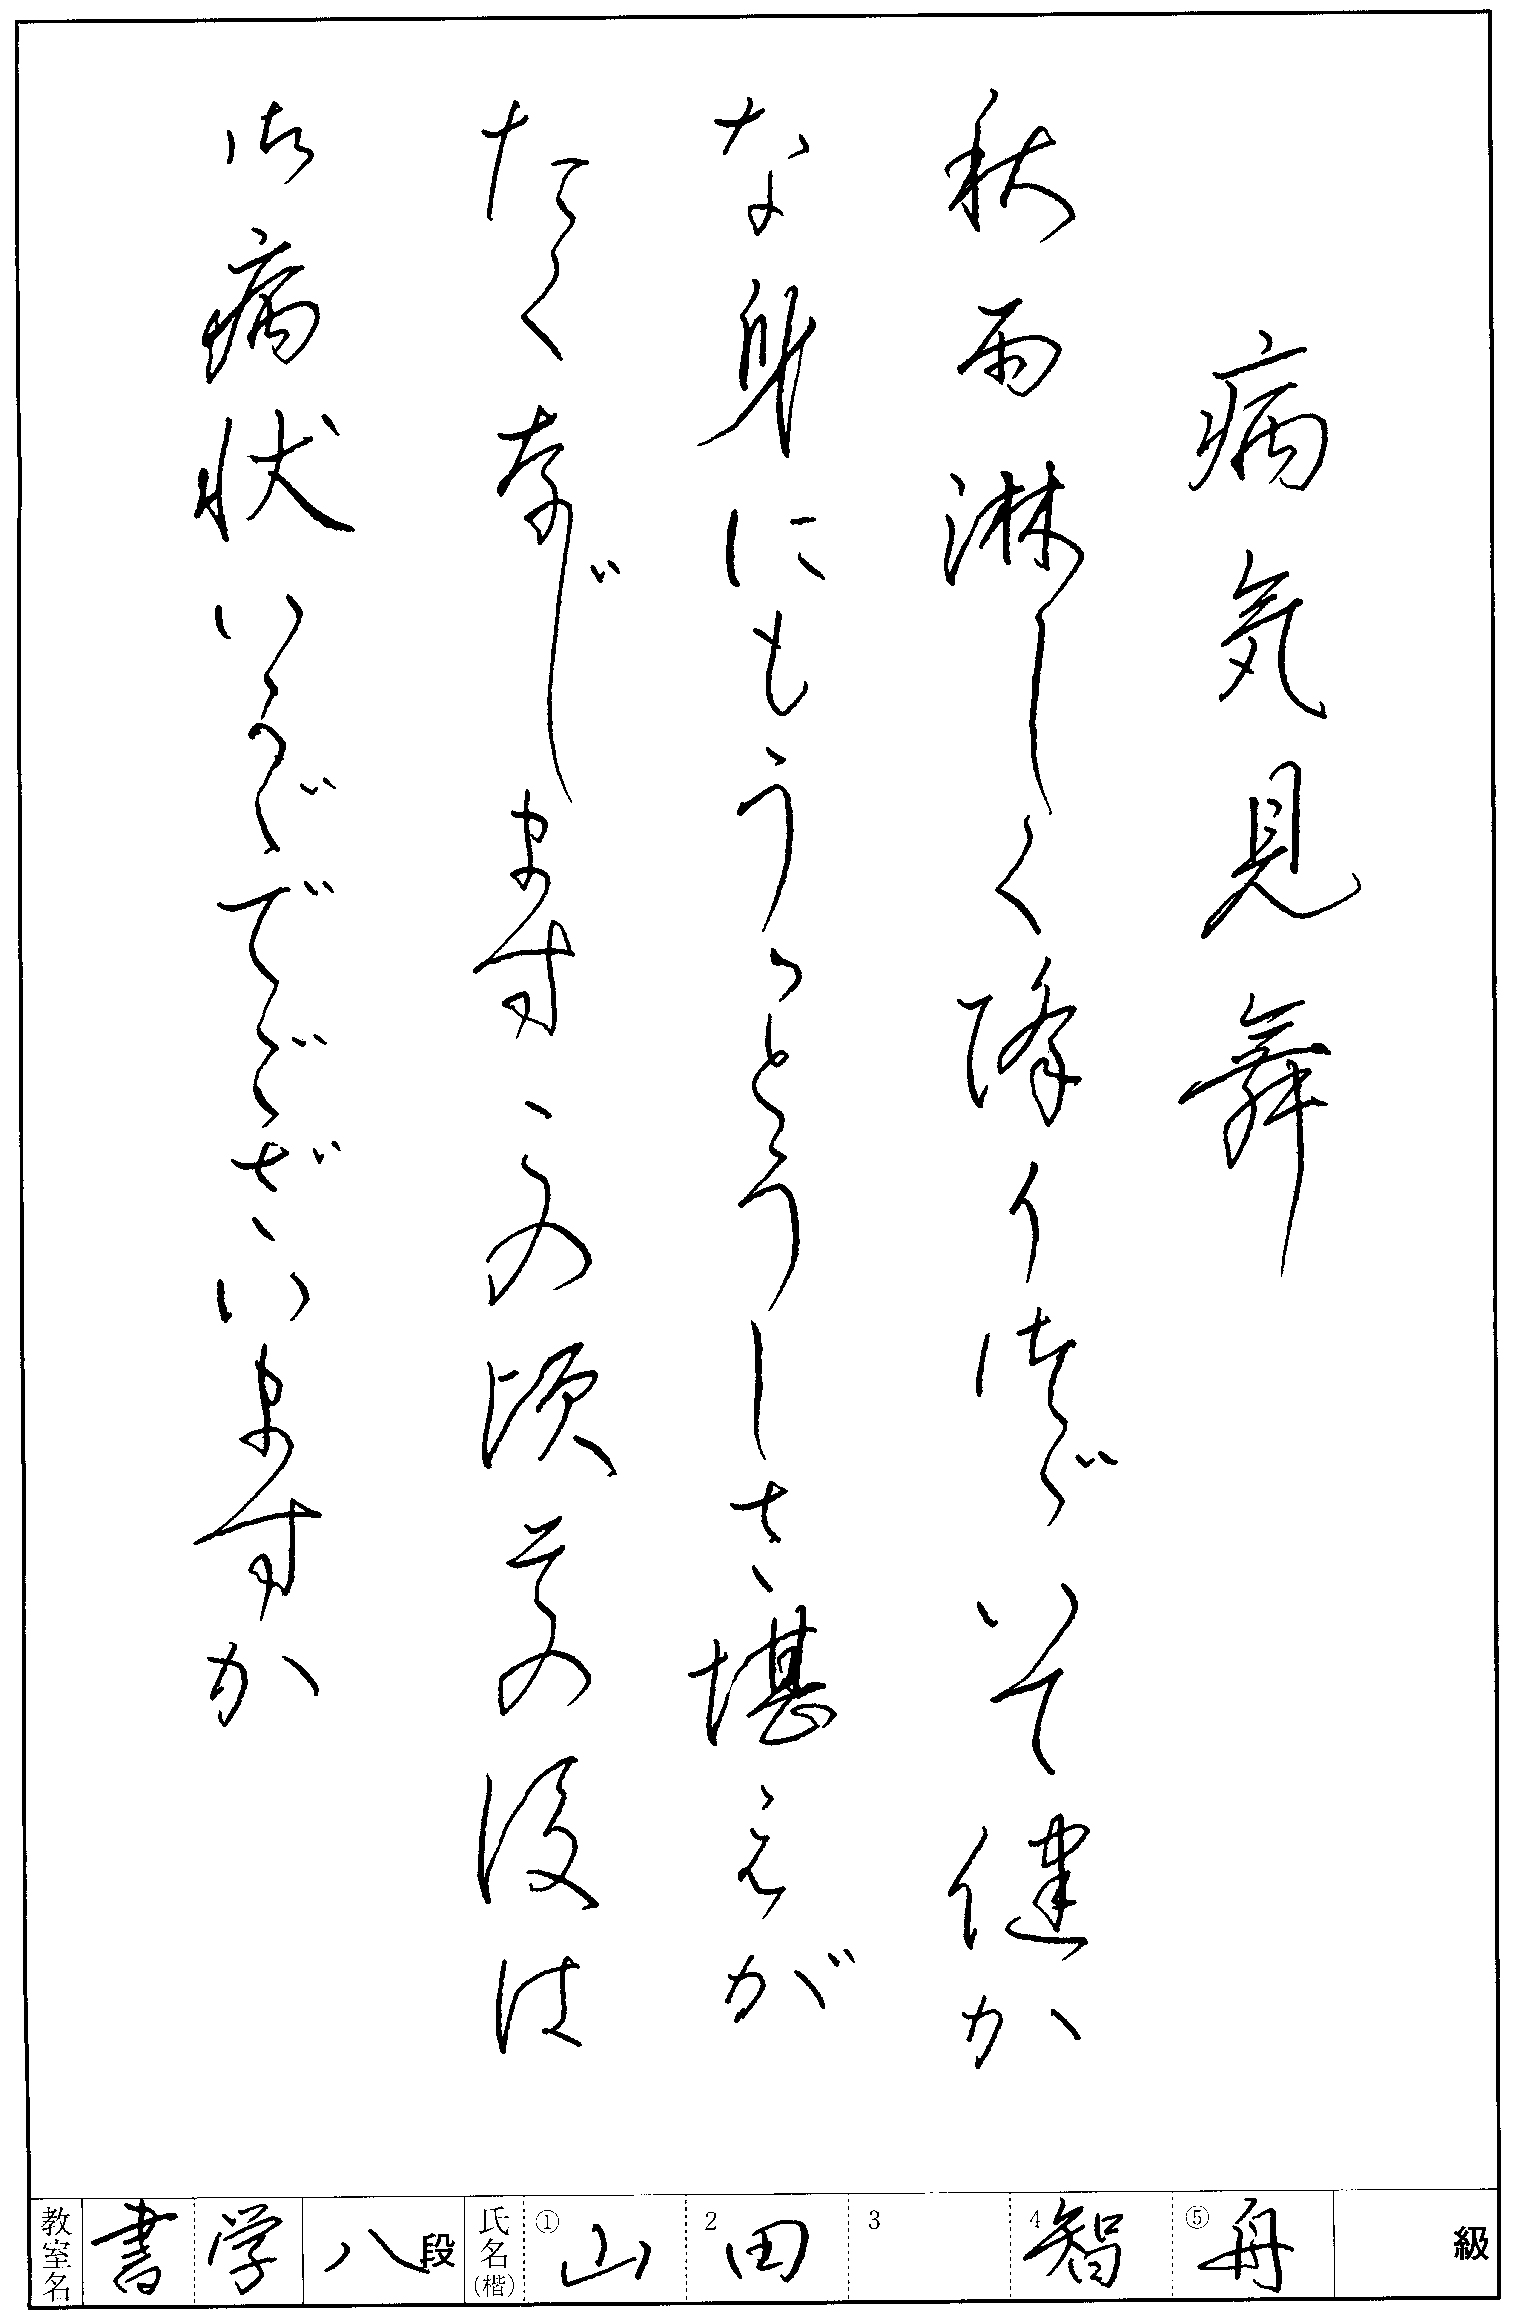 病気見舞
秋雨淋しく降りつゞいて健か
な身にもうっとうしさ堪えが
たく存じます この頃その後は
御病状いかゞでございますか
教室名 書学 八段 氏名(楷) ① 山 2 田 3 4 智 ⑤ 舟 級